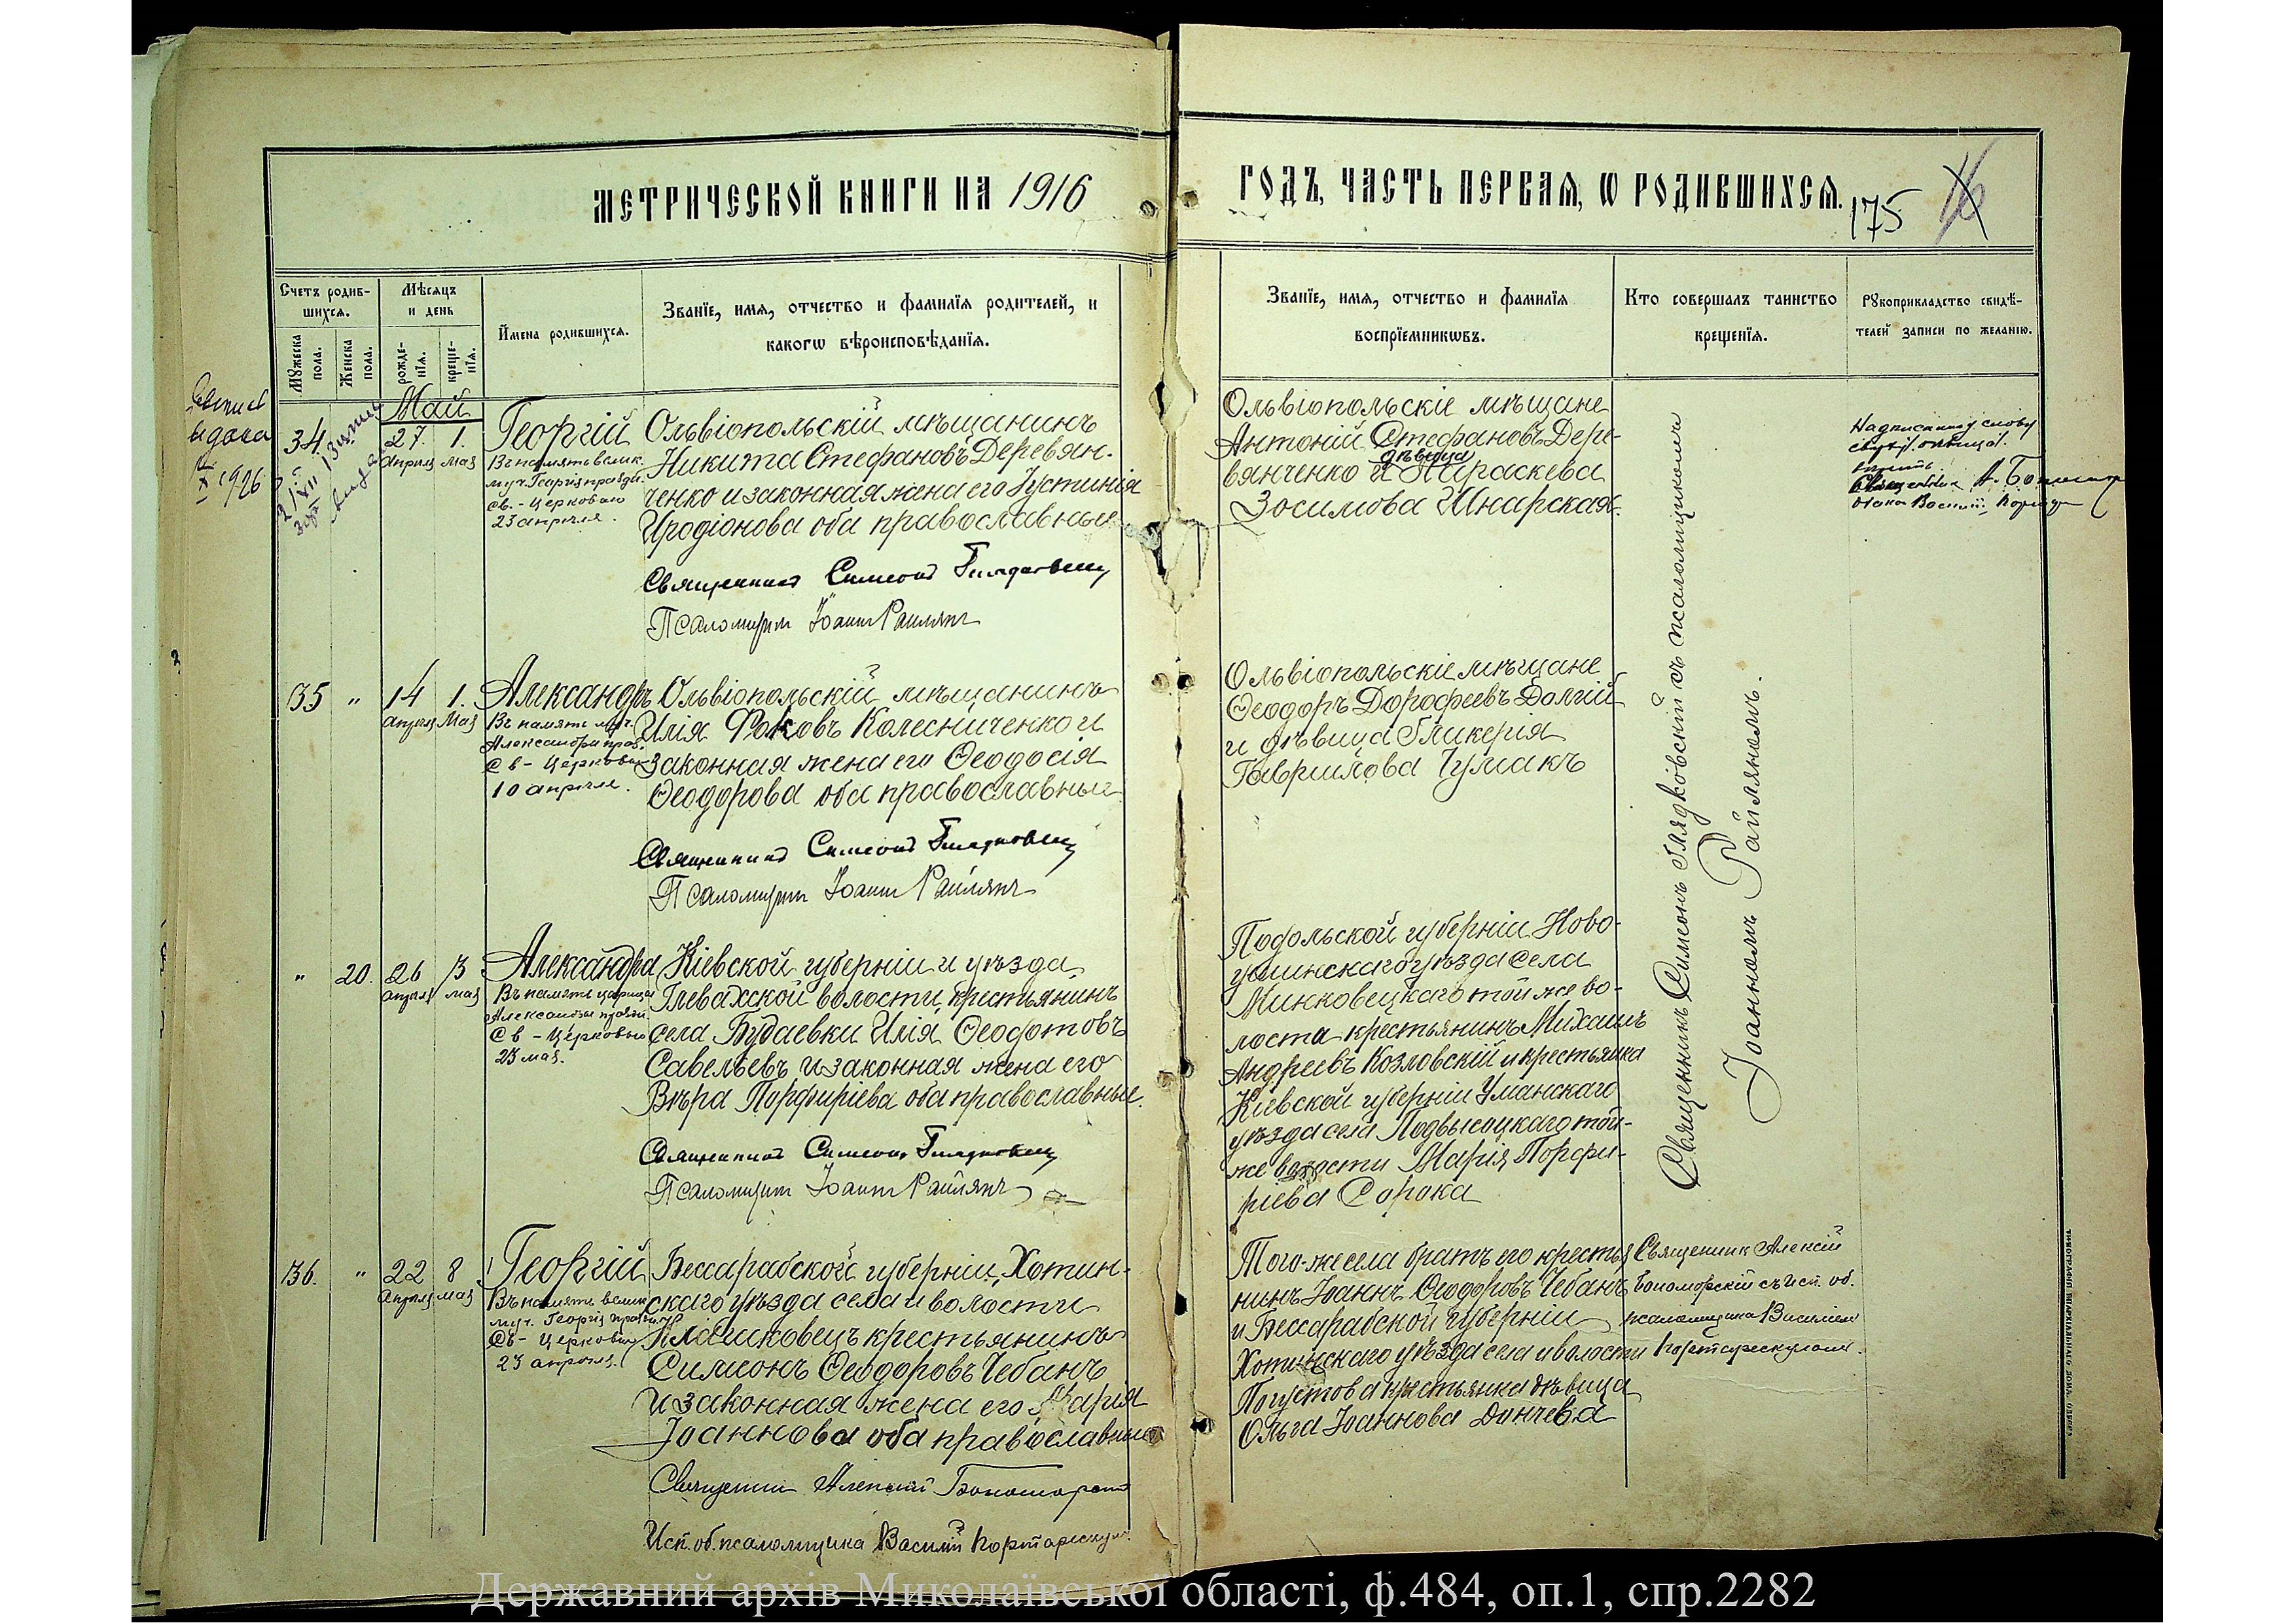 МЕТРИЧЕСКОЙ КНИГИ НА 1916
ГОДЪ, ЧАСТЬ ПЕРВАЯ, Ѡ РОДИВШИХСЯ.
175
16
Счетъ родив-
шихся.
Мужеска
пола.
Женска
пола.
Мѣсяцъ
и день
рожде-
нїя.
креще-
нїя.
Имена родившихся.
Званїе, имя, отчество и фамилїя родителей, и
какогѡ вѣроисповѣданїя.
Званїе, имя, отчество и фамилїя
воспрїемникѡвъ.
Кто совершалъ таинство
крещенїя.
Рукоприкладство свидѣ-
телей записи по желанїю.
Май
34.
27. 1.
Апрѣля Мая
Георгій
Въ память велик.
муч. Георгія праздн.
св. - Церковью
23 апрѣля.
Ольвіопольскій мѣщанинъ
Никита Стефановъ Деревян-
ченко и законная жена его Іустинія
Иродіонова оба православные
Священникъ Симеонъ Глядковскій
Псаломщикъ Іоаннъ Райлянъ
Ольвіопольскіе мѣщане
Антоній Стефановъ Дере-
вянченко и дѣвица Параскева
Зосимова Инарская.
Надписанному слову
дѣвица
вѣрить.
Священникъ А. Бономорскій
1926
35 " 14 1.
Апрѣля Мая
Александръ
Въ память муч.
Александра праз.
Св - Церковью
10 апрѣля.
Ольвіопольскій мѣщанинъ
Илія Фоковъ Колесниченко и
законная жена его Ѳеодосія
Ѳеодорова оба православные
Священникъ Симеонъ Глядковскій
Псаломщикъ Іоаннъ Райлянъ
Ольвіопольскіе мѣщане
Ѳеодоръ Дорофеевъ Долгій
и дѣвица Гликерія
Гаврилова Чумакъ
Священникъ Симеонъ Глядковскій съ псаломщикомъ
Іоанномъ Райляномъ.
" 20. 26 3
апрѣля мая
Александра
Въ память царицы
Александры праздн.
Св - Церковью
23 мая.
Кіевской губерніи и уѣзда,
Глевахской волости, крестьянинъ
села Будаевки Илія Ѳеодотовъ
Савельевъ и законная жена его
Вѣра Порфиріева оба православные.
Священникъ Симеонъ Глядковскій
Псаломщикъ Іоаннъ Райлянъ
Подольской губерніи Ново-
ушинскаго уѣзда села
Минковецкаго той же во-
лости крестьянинъ Михаилъ
Андреевъ Козловскій и крестьянка
Кіевской губерніи Уманскаго
уѣзда села Подвысоцкаго той-
же волости Марія Порфи-
ріева Сорока
36. " 22 8
Апрѣля мая
Георгій
Въ память велик
муч. Георгія празд.
Св - Церковью
23 апрѣля.
Бессарабской губерніи, Хотин-
скаго уѣзда села и волости
крестьянинъ
Симеонъ Ѳеодоровъ Чебанъ
и законная жена его Марія
Іоаннова оба православные
Священникъ Алексій Бономорскій
Исп. об. псаломщика Василій Портарескулъ
Того-же села братъ его крестья
нинъ Іоаннъ Ѳеодоровъ Чебанъ
и Бессарабской губерніи
Хотинскаго уѣзда села и волости
крестьянка дѣвица
Ольга Іоаннова Дончева
Священникъ Алексій
Бономорскій съ исп. об.
псаломщика Василіемъ
Портарескуломъ.
Державний архів Миколаївської області, ф.484, оп.1, спр.2282